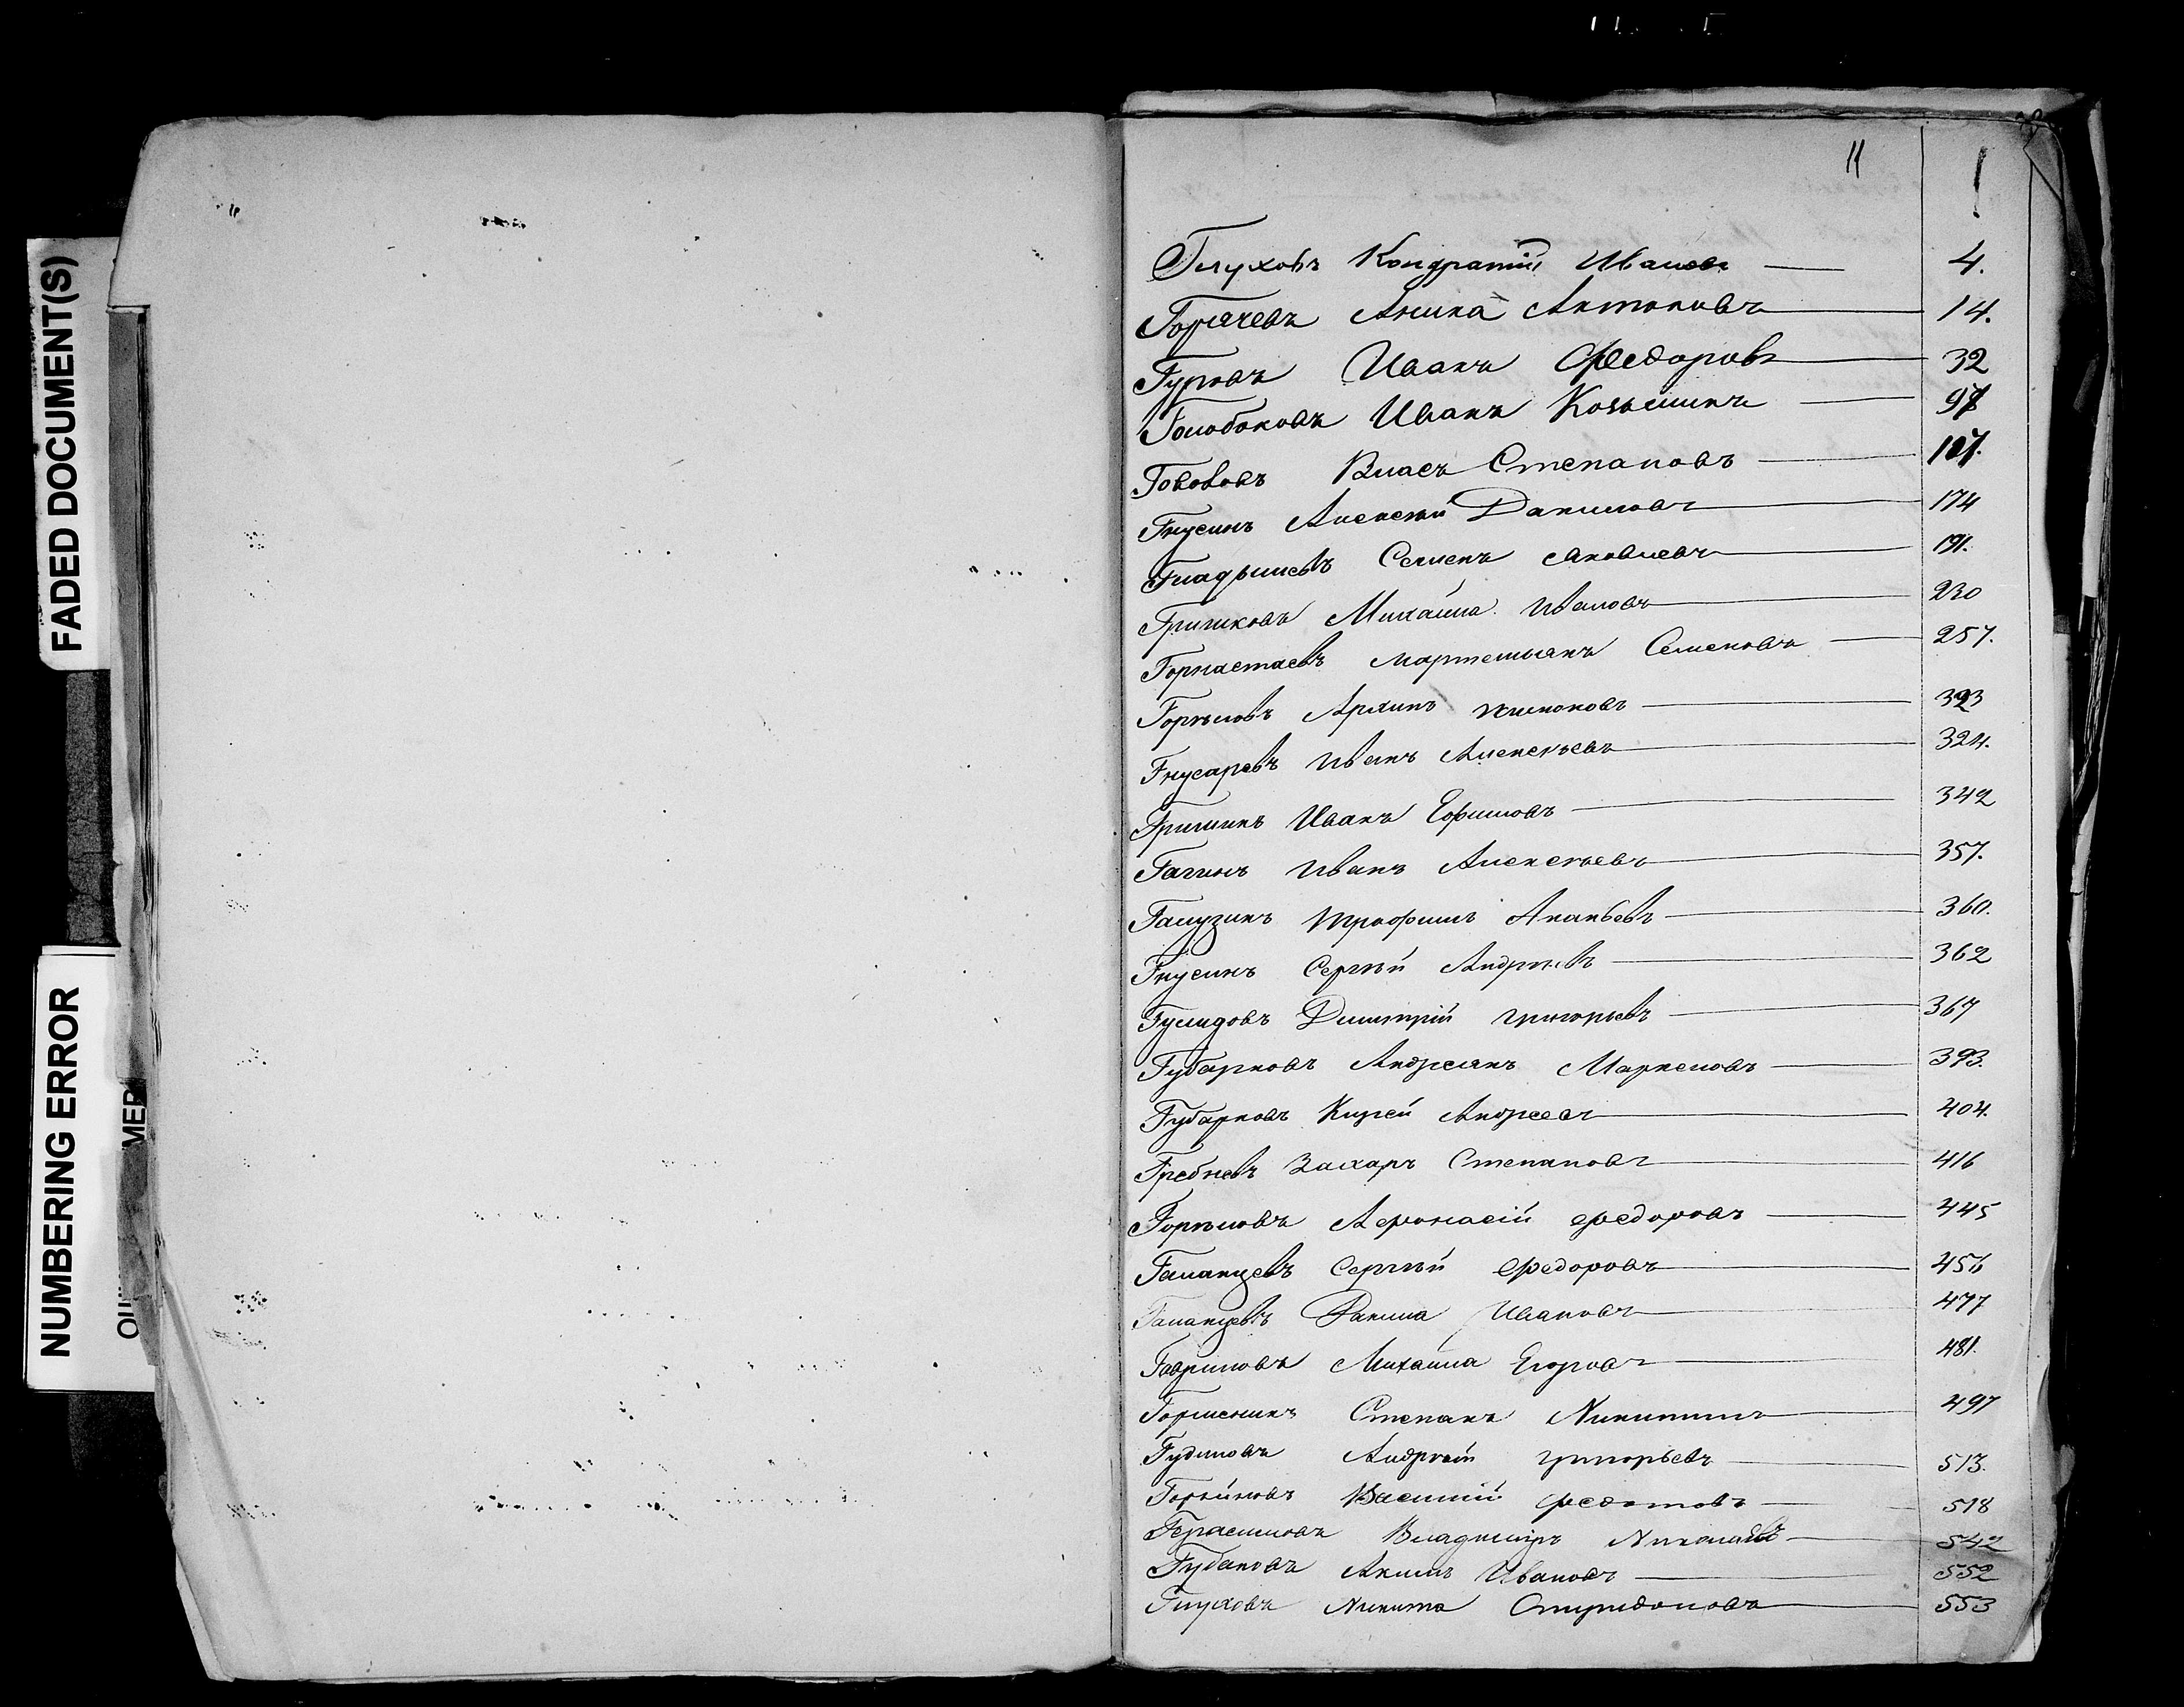 FADED DOCUMENT(S)
NUMBERING ERROR
11
Глуховъ Кондратій Ивановъ 4.
Горячевъ Аника Антоновъ 14.
Гуровъ Иванъ Федоровъ 32
Голобоковъ Иванъ Козьминъ 97
Гововъ Власъ Степановъ 107.
Гнусинъ Алексей Даниловъ 174
Гладышевъ Семенъ Яковлевъ 191.
Гришковъ Михайла Ивановъ 230
Горностаевъ Мартемьянъ Семеновъ 257.
Горѣловъ Архипъ 323
Гнусаревъ Иванъ Алексѣевъ 324.
Гришинъ Иванъ Ефимовъ 342
Гагинъ Иванъ Алексѣевъ 357.
Галузинъ Трофимъ Ананьевъ 360.
Гнусинъ Сергѣй Андреевъ 362
Гулидовъ Димитрій Григорьевъ 367
Губарковъ Андреянъ Маркеловъ 393.
Губарковъ Кирей Андреевъ 404.
Гребневъ Захаръ Степановъ 416
Горѣловъ Афонасій Федоровъ 445
Галанцевъ Сергѣй Федоровъ 456
Галанцевъ Данила Ивановъ 477
Гавриловъ Михайла Егоровъ 481.
Горшенинъ Степанъ Никитинъ 497
Гудиловъ Андрѣй Григорьевъ 513.
Василій Федотовъ 518
Герасимовъ Владимиръ Николаевъ 542
Губановъ Акимъ Ивановъ 552
Глуховъ Никита Спиридоновъ 553